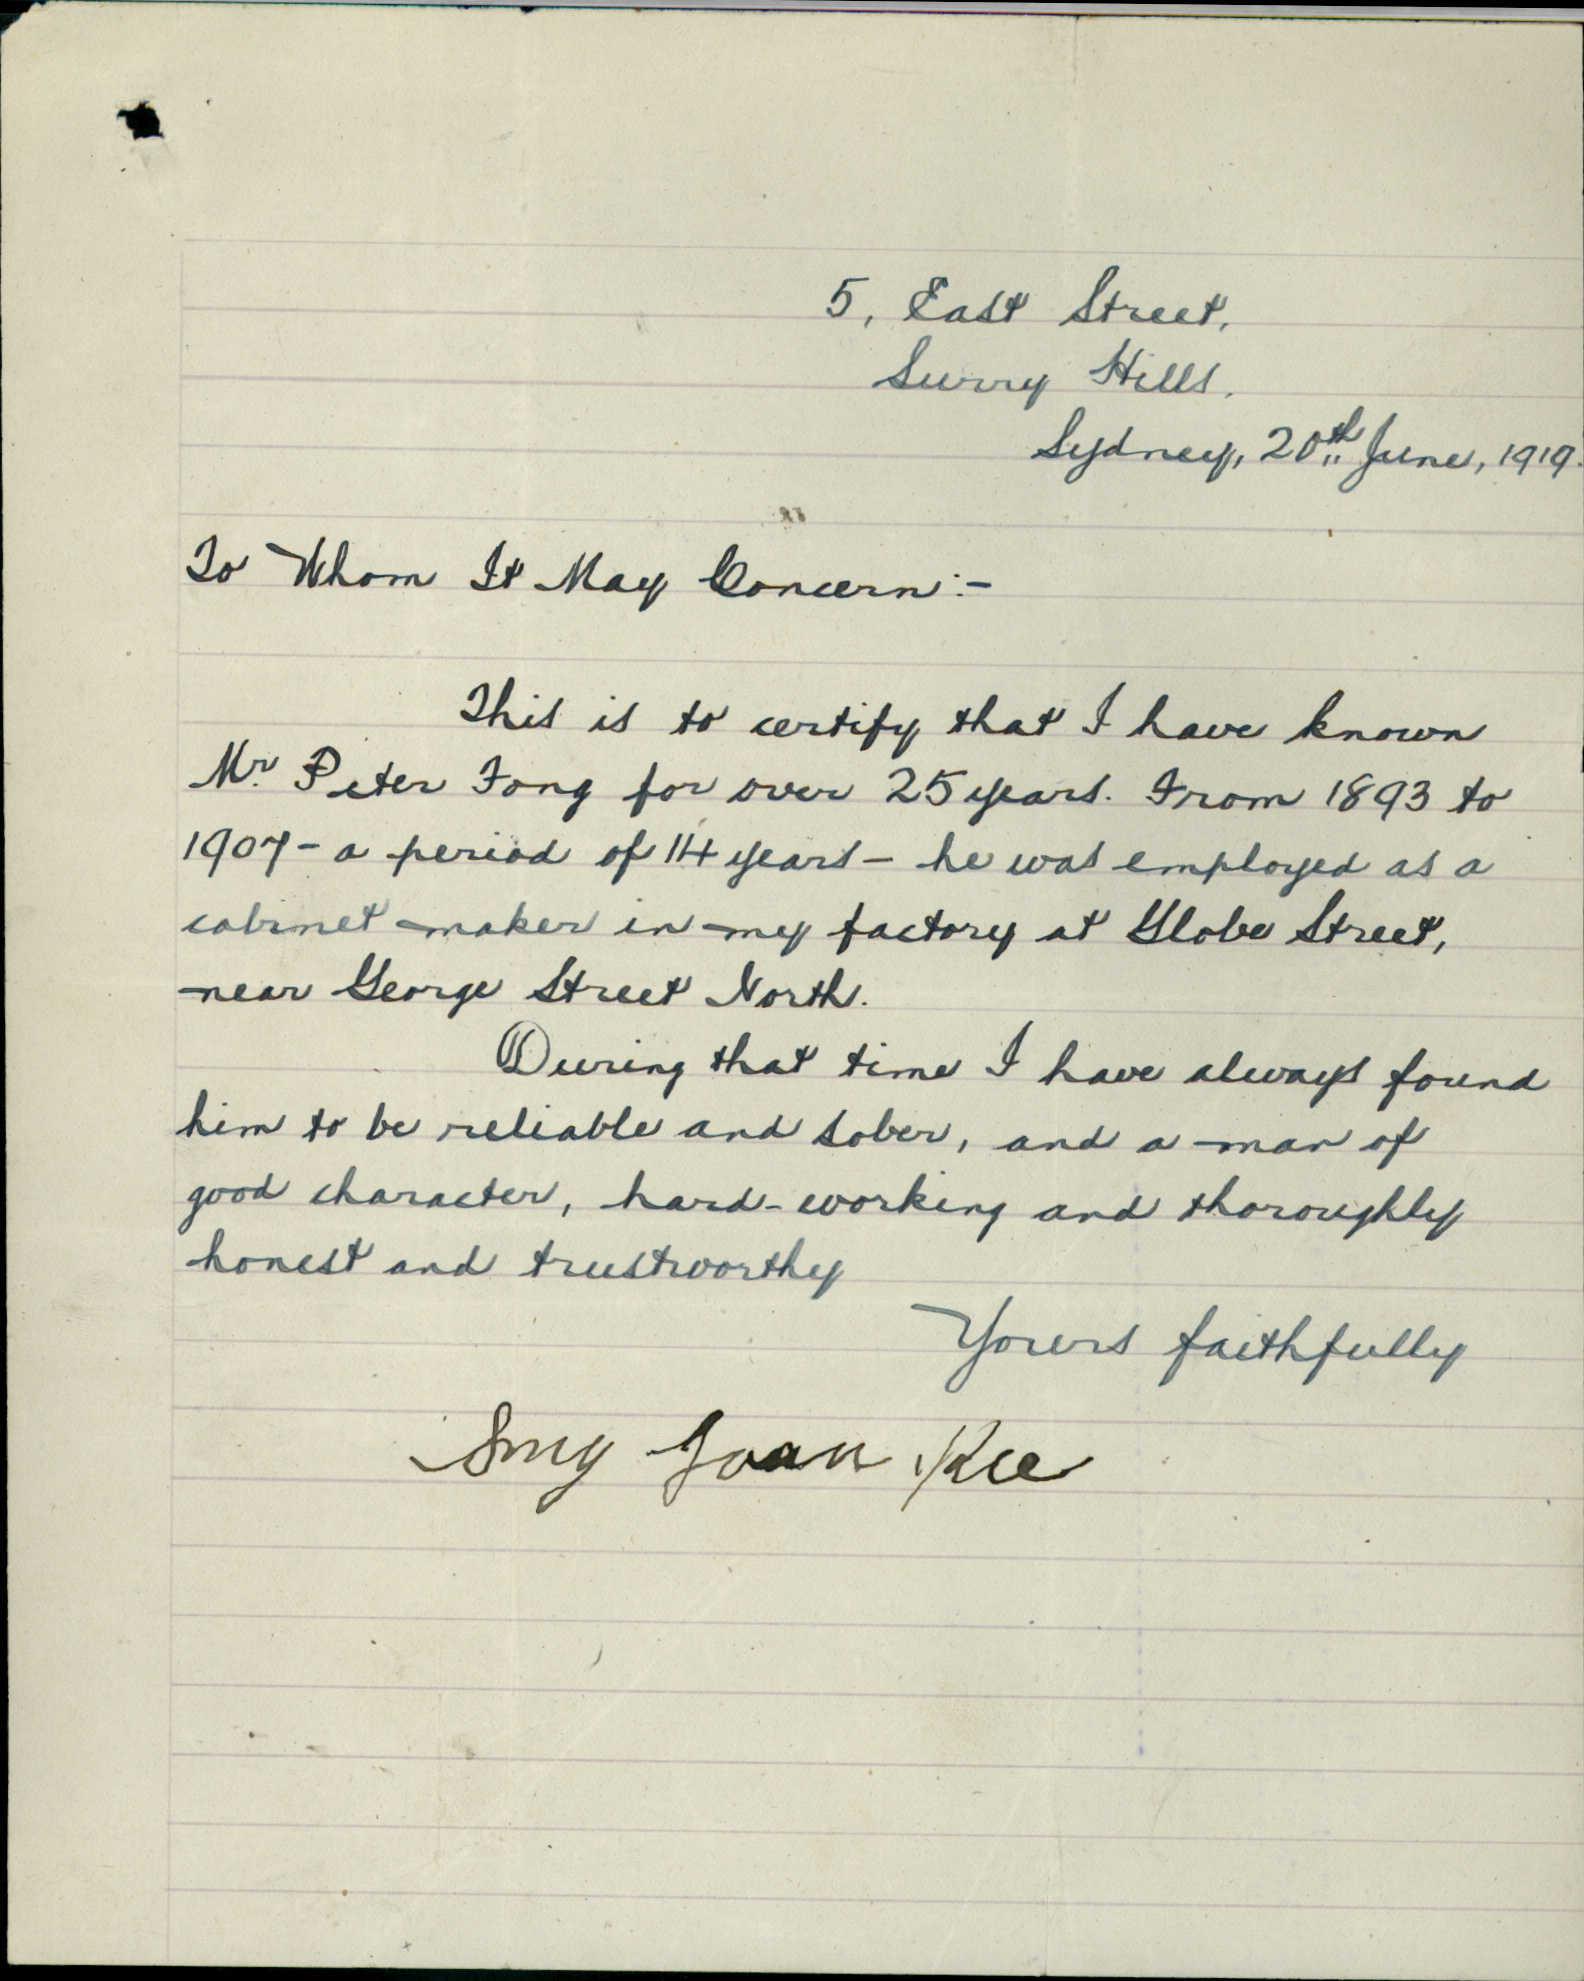 5, East Street,
Surry Hills.
Sydney, 20th June, 1919.
To Whom It May Concern:-
This is to certify that I have known
Mr. Peter Fong for over 25 years. From 1893 to
1907 - a period of 14 years - he was employed as a
cabinet maker in my factory at Globe Street,
near George Street North.
During that time I have always found
him to be reliable and sober, and a man of
good character, hard-working and thoroughly
honest and trustworthy
Yours faithfully
Kee